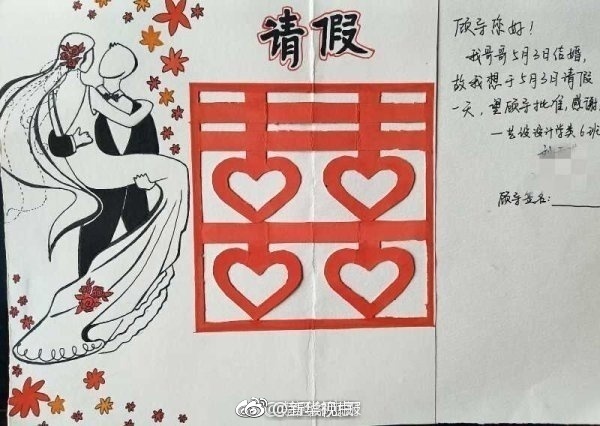 请假
囍
顾导您好!
我哥哥5月3日结婚,
故我想于5月3日请假
一天,望顾导批准,感谢
一艺设设计学类6班
顾导签名: